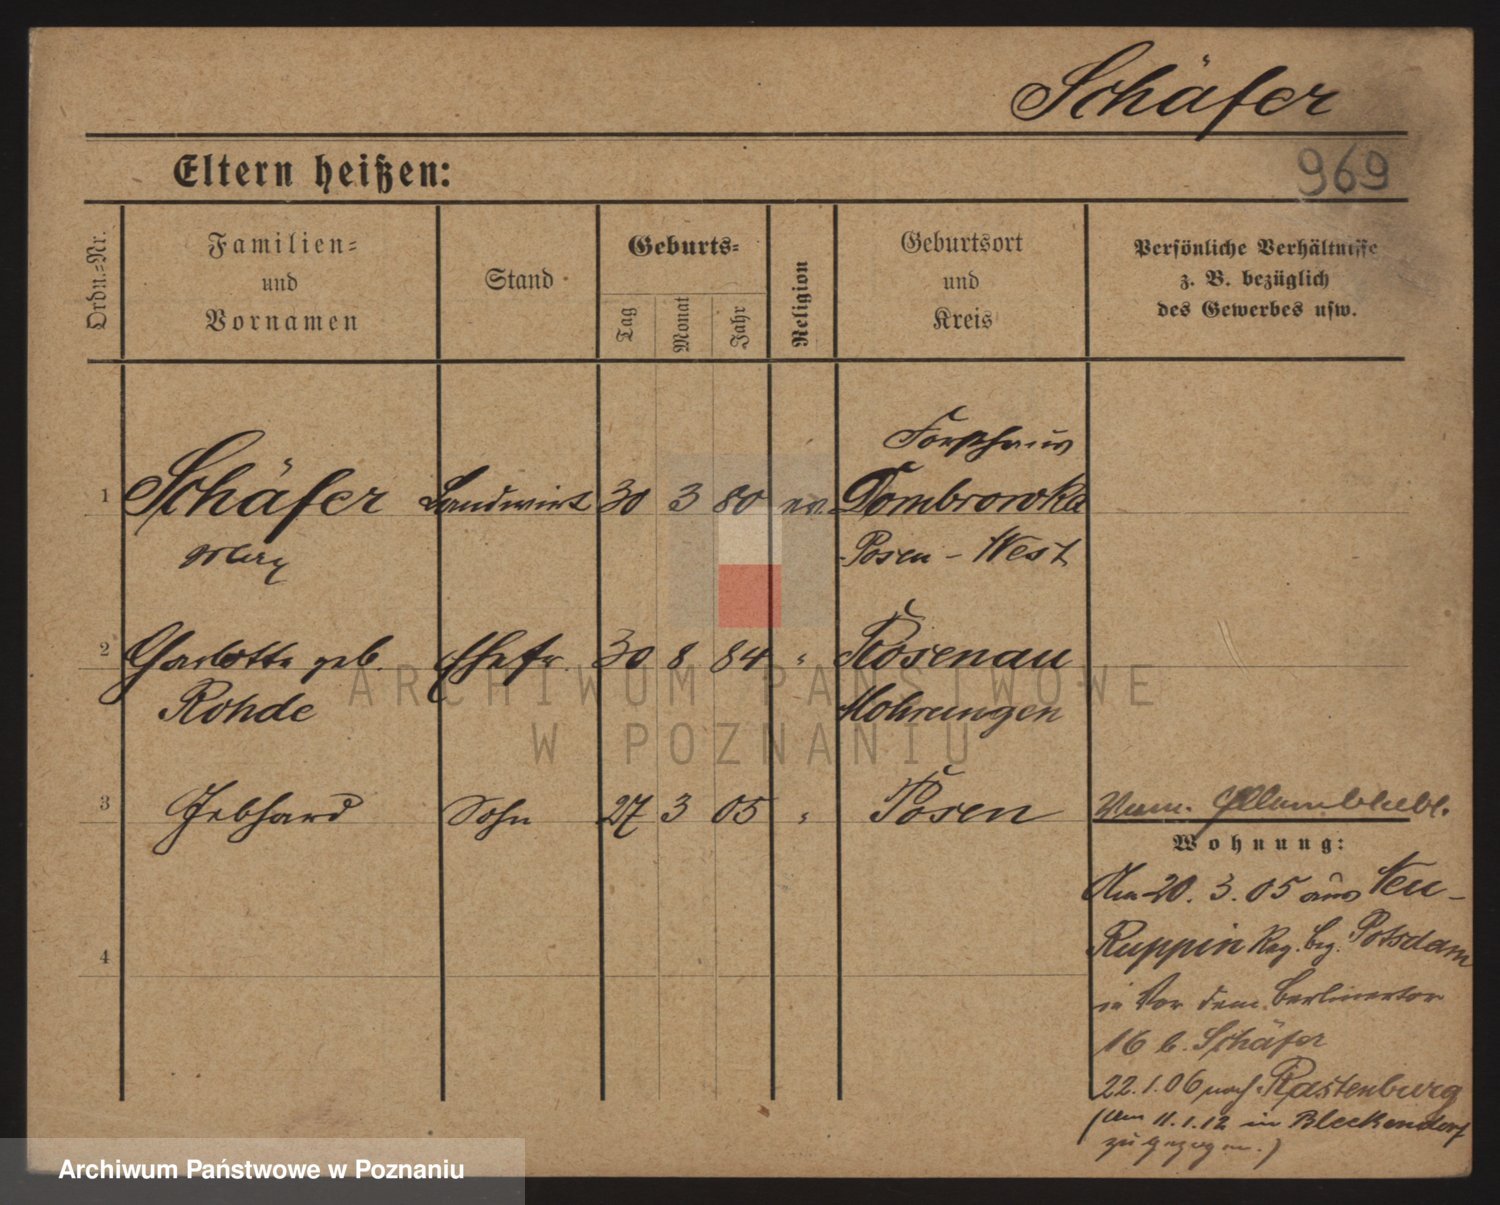 Schäfer
Eltern heißen:
969
Ordn.=Nr.
Familien=
und
Vornamen
Stand
Geburts=
Tag
Monat
Jahr
Religion
Geburtsort
und
Kreis
Persönliche Verhältnisse
z. B. bezüglich
des Gewerbes usw.
Forsthaus
1 Schäfer Landwirt 30 3 80 ev. Dombrowka
Max Posen - West
2 Charlotte geb. Ehefr. 30 8 84 " Rosenau
Rohde Mohrungen
3 Gebhard Sohn 27 3 05 " Posen
Wohnung:
Am 20. 3. 05 aus Neu-
4
Ruppin Reg. Bez. Potsdam
in Vor dem Berlinertor
16 b. Schäfer
22.1.06 nach Rastenburg
(Am 11.1.12 in Bleckendorf
zugezogen.)
ARCHIWUM PAŃSTWOWE
W POZNANIU
Archiwum Państwowe w Poznaniu